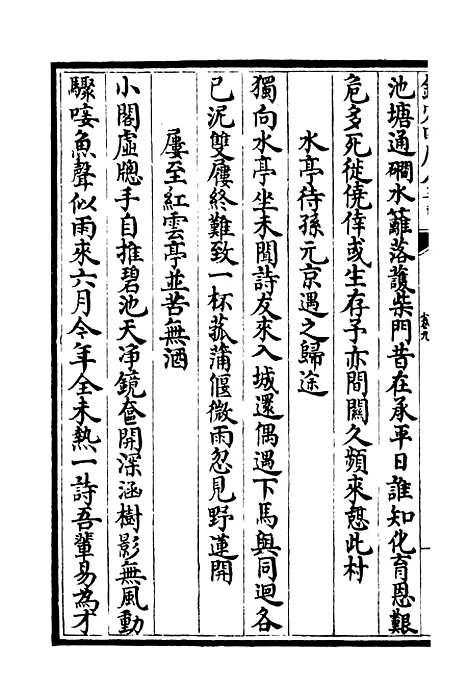 池塘通磵水籬落護柴門昔在承平日誰知化育恩艱
危多死徙僥倖或生存予亦間關久頻來憩此村
水亭待孫元京遇之歸途
獨向水亭坐未聞詩友來入城還偶遇下馬與同迴各
已泥雙屨終難致一杯菰蒲偃微雨忽見野蓮開
屢至紅雲亭並苦無酒
小閣虛牕手自推碧池天净鏡奩開深涵樹影無風動
驟唼魚聲似雨來六月今年全未熱一詩吾輩易為才